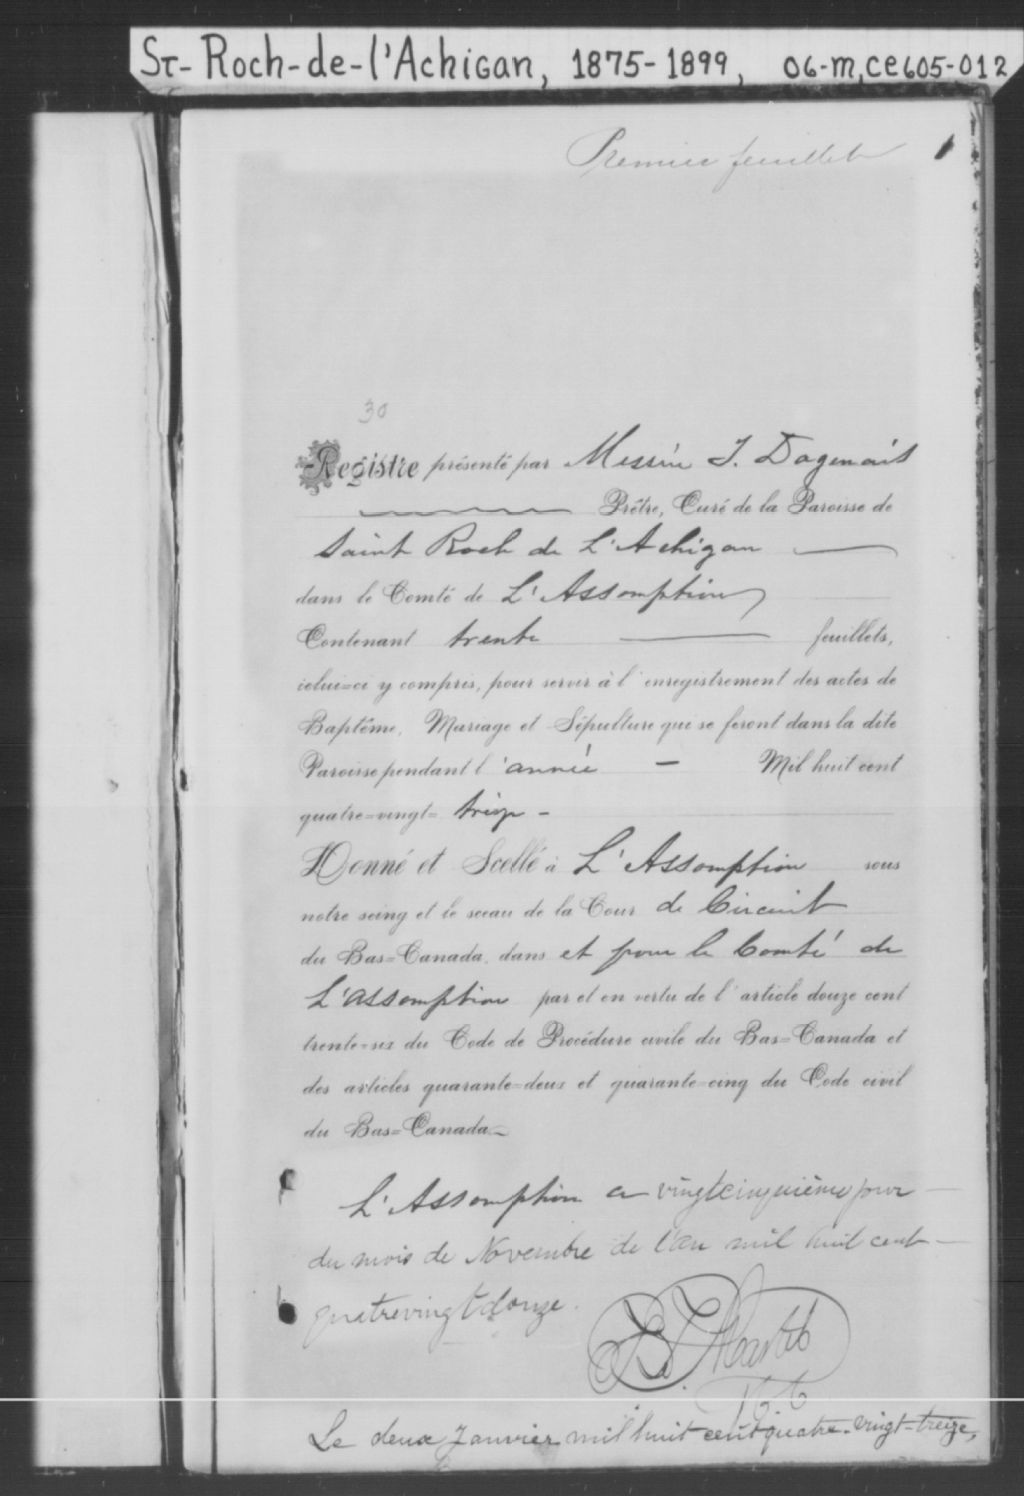 St-Roch-de-l'Achigan, 1875-1899, 06-M, CE605-012
Premier feuillet 1
30
Registre présenté par Messire J. Dagenais
Prêtre, Curé de la Paroisse de
Saint Roch de L'Achigan
dans le Comté de L'Assomption
Contenant trente feuillets,
celui=ci y compris, pour servir à l'enregistrement des actes de
Baptême, Mariage et Sépulture qui se feront dans la dite
Paroisse pendant l'année - Mil huit cent
quatre=vingt= treize -
Donné et Scellé à L'Assomption sous
notre seing et le sceau de la Cour de Circuit
du Bas=Canada, dans et pour le Comté de
L'assomption par et en vertu de l'article douze cent
trente=six du Code de Procédure civile du Bas=Canada et
des articles quarante=deux et quarante=cinq du Code civil
du Bas=Canada
L'Assomption ce vingtcinquième jour
du mois de Novembre de l'an mil huit cent
quatrevingt douze.
Le deux Janvier mil huit cent quatre-vingt-treize,